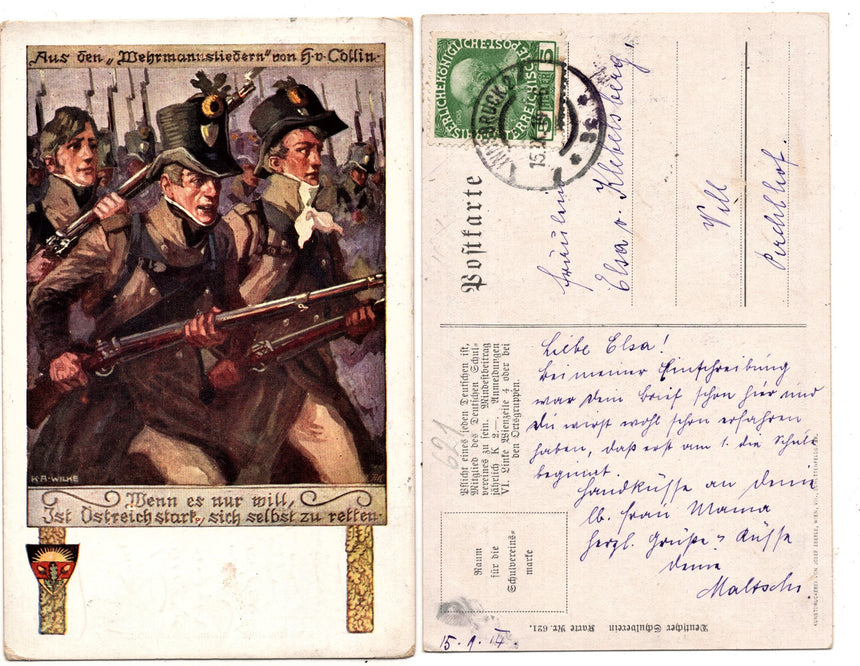 Aus den „Wehrmannsliedern" von H. v. Collin.
K·A·WILKE
Wenn es nur will,
Ist Östreich stark, sich selbst zu retten.
KAISERLICHE KÖNIGLICHE ÖSTERREICHISCHE POST
5 HELLER 5
INNSBRUCK 2
15.
Postkarte
Fräulein
Elsa v. Klebelsberg,
Vill
Perchlhof.
Pflicht eines jeden Deutschen ist,
Mitglied des Deutschen Schul-
vereines zu sein. Mindestbeitrag
jährlich K 2,—. Anmeldungen
VI. Linke Wienzeile 4 oder bei
den Ortsgruppen.
621
Raum
für die
Schulvereins-
marke
Liebe Elsa!
Bei meiner Einschreibung
war dein Brief schon hier und
du wirst wohl schon erfahren
haben, daß erst am 1. die Schule
beginnt.
Handküsse an deine
lb. Frau Mama
herzl. Grüße u. Küsse
deine
15.9.
Deutscher Schulverein Karte Nr. 621.
KUNSTDRUCKEREI VON JOSEF EBERLE, WIEN, VII.